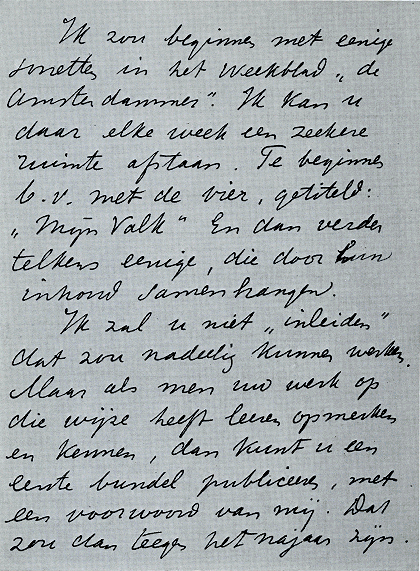 Ik zou beginnen met eenige
sonetten in het Weekblad „de
Amsterdammer". Ik kan u
daar elke week een zeekere
ruimte afstaan. Te beginnen
b.v. met de vier, getiteld:
„Mijn Valk" En dan verder
telkens eenige, die door hun
inhoud samenhangen.
Ik zal u niet „inleiden"
dat zou nadeelig kunnen werken.
Maar als men uw werk op
die wijze heeft leeren opmerken
en kennen, dan kunt u een
eerste bundel publiceeren, met
een voorwoord van mij. Dat
zou dan teegen het najaar zijn.